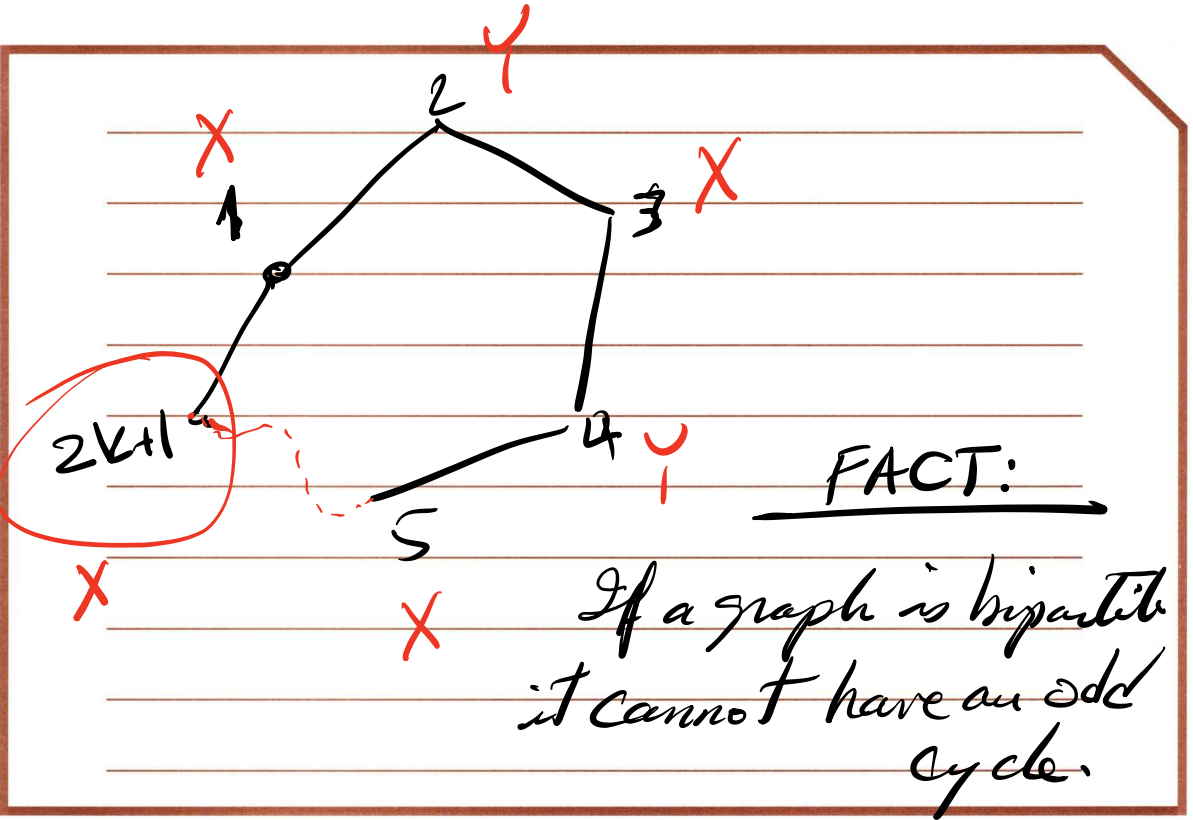 Y
2
X
X
1
3
2k+1
4
Y
FACT:
5
X
X
If a graph is bipartite
it cannot have an odd
cycle.